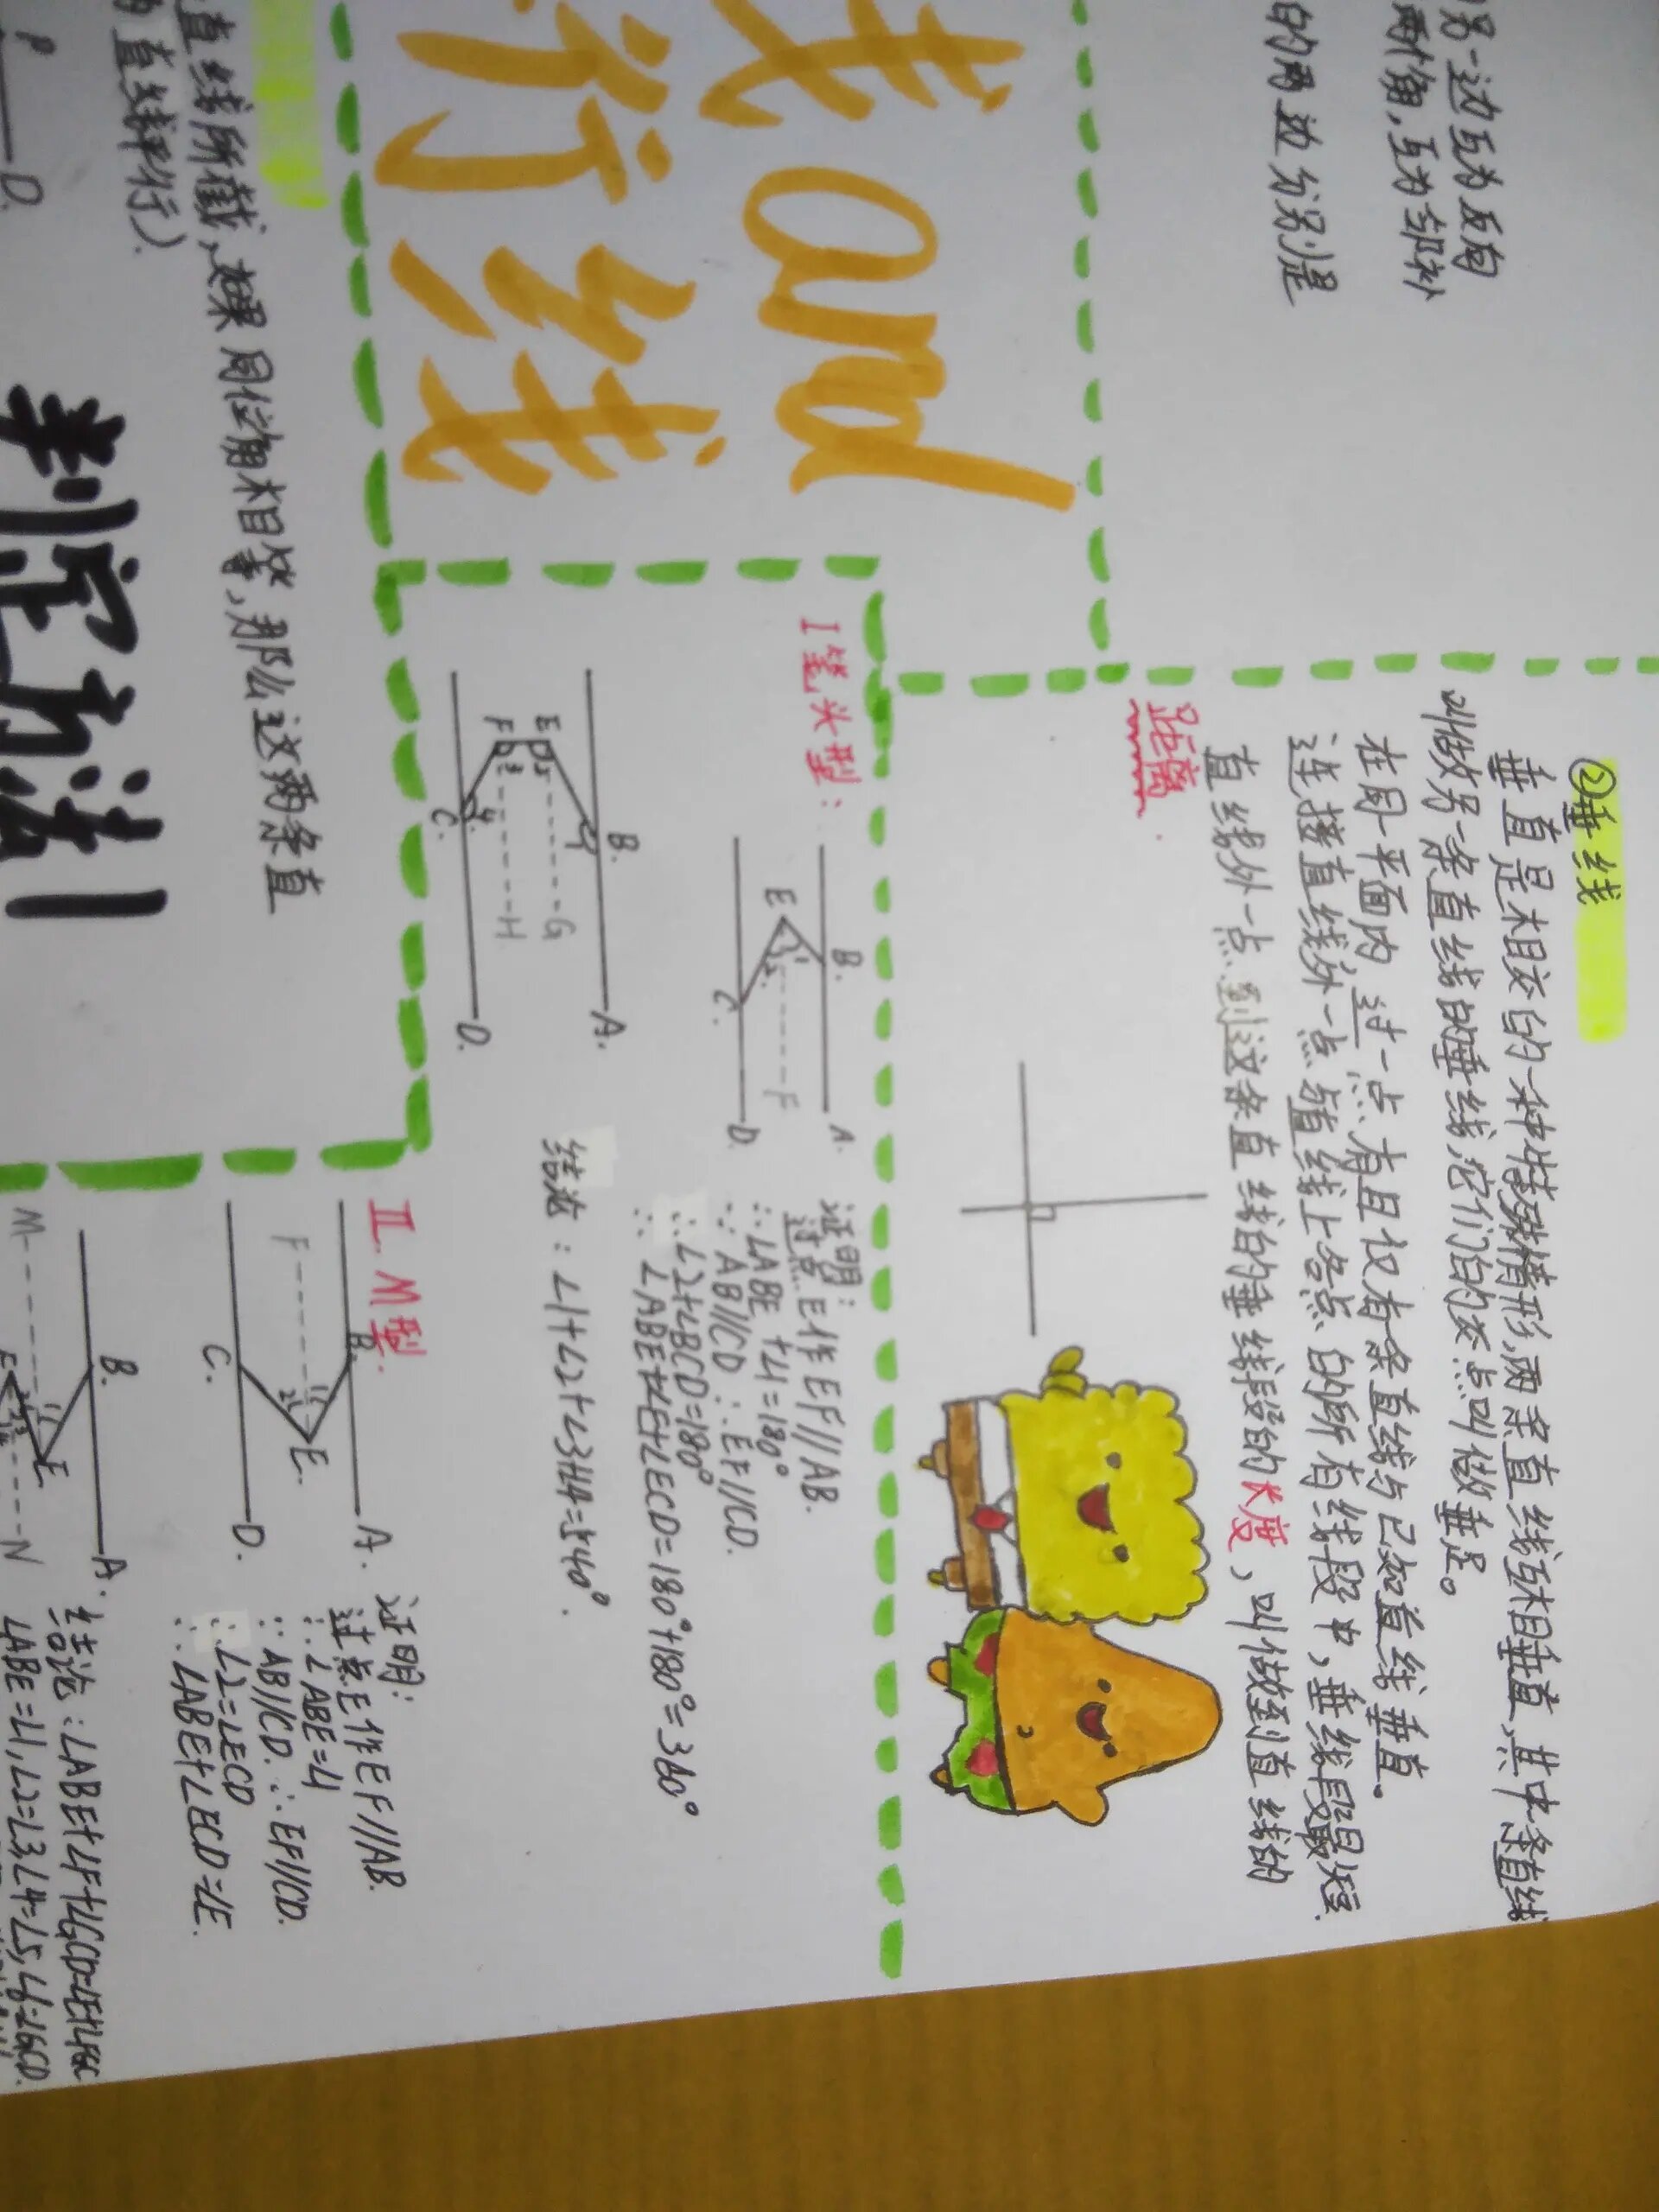 另一边互为反向
两个角,互为邻补
的两边分别是
②垂线
垂直是相交的一种特殊情形,两条直线互相垂直,其中一条直线
叫做另一条直线的垂线,它们的交点叫做垂足。
在同一平面内,过一点有且仅有一条直线与已知直线垂直.
连接直线外一点与直线上各点的所有线段中,垂线段最短.
距离
直线外一点到这条直线的垂线段的长度,叫做点到直线的
and
行线
I笔头型:
B. A.
E F
C. D.
1 2
证明:
过点E作EF//AB.
∴∠ABE+∠1=180°
∵AB//CD ∴EF//CD.
∴∠2+∠BCD=180°
∴∠ABE+∠E+∠ECD=180°+180°=360°
B. A.
E G
F H
C. D.
结论:∠1+∠2+∠3+∠4=540°.
II.M型.
B. A.
F E.
C. D.
1 2
证明:
过点E作EF//AB.
∴∠ABE=∠1
∵AB//CD.∴EF//CD.
∴∠2=∠ECD
∴∠ABE+∠ECD=∠E.
B. A.
E
M N
F
结论:∠ABE+∠F+∠GCD=∠E+∠FGC
∠ABE=∠1,∠2=∠3,∠4=∠5,∠6=∠GCD.
直线所截,如果同位角相等,那么这两条直
直线平行).
P D.
判定方法1